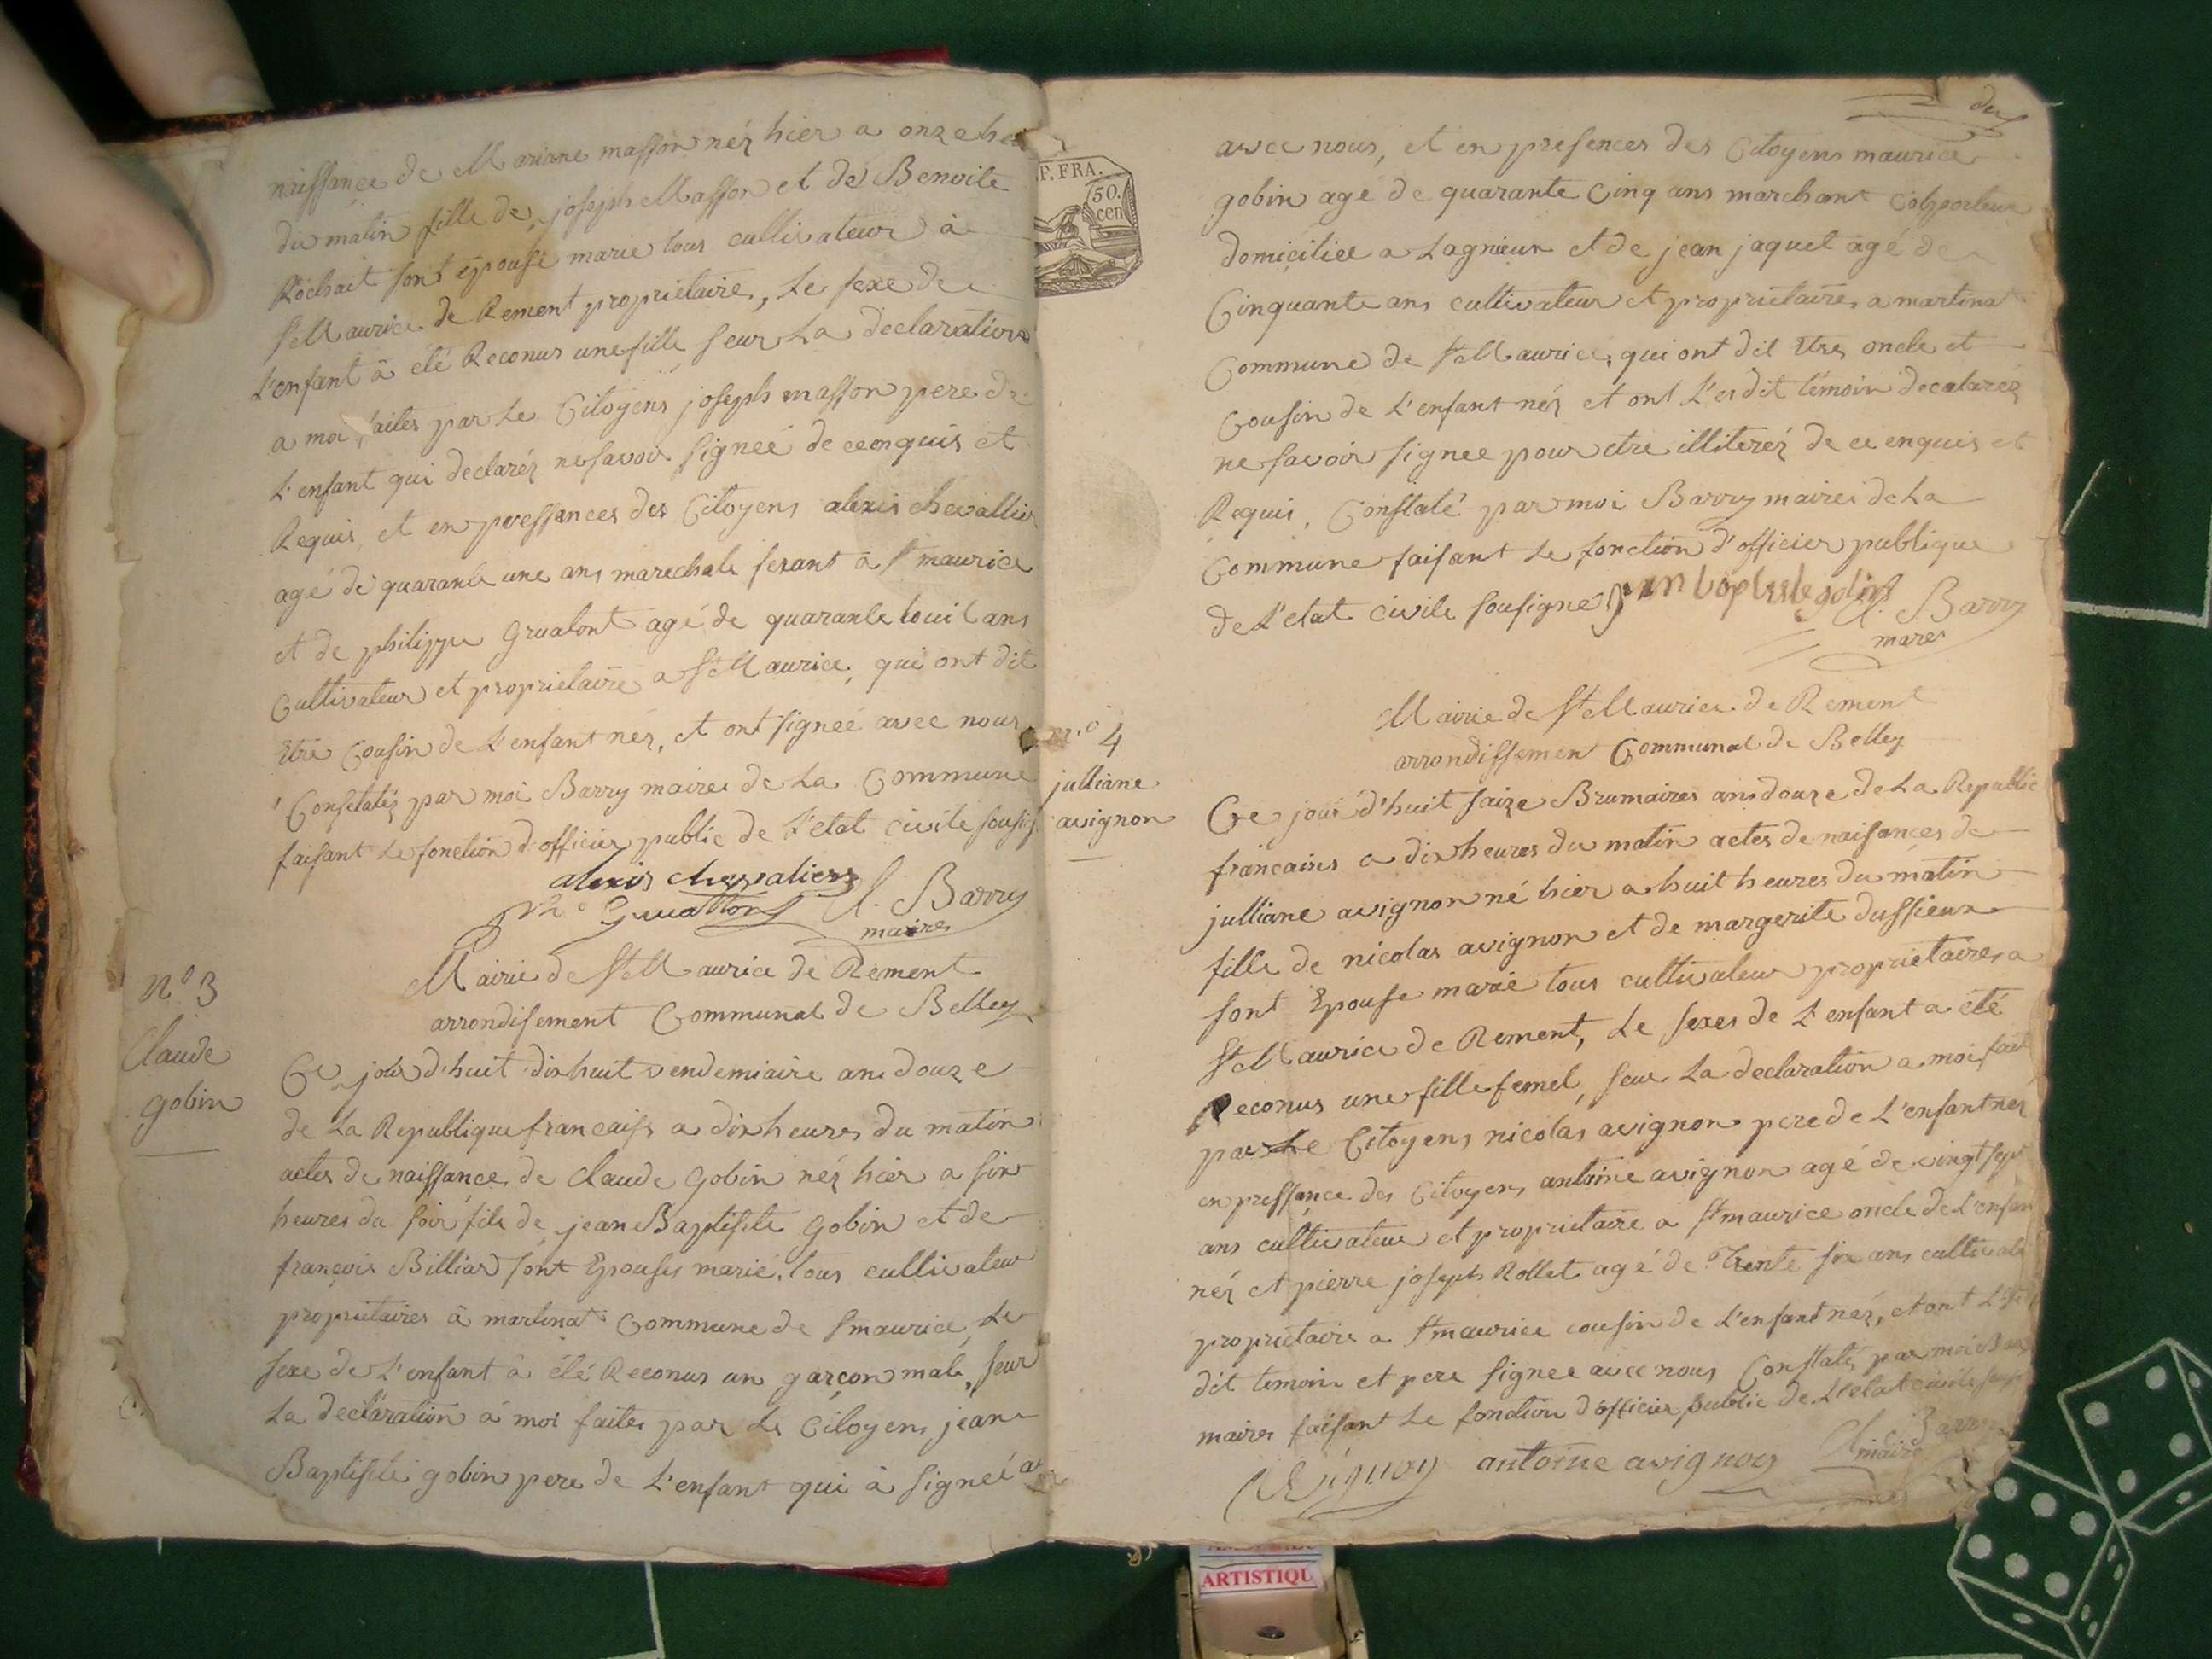 naissance de Marianne masson néz hier a onze heu
du matin fille de joseph Masson et de Benoite
Rochait sont épouse marie tous cultivateur à
St Maurice de Rement proprietaire, Le sexe de
L'enfant à été Reconus une fille seur La declaration
a moi faites par Le Citoyens joseph masson pere de
L'enfant qui declaréz ne savoir signeé de ce enquis et
Requis, et en pressances des Citoyens alexis chevallier
agé de quarante une ans marechale ferant à St maurice
et de philippe Gruatont agé de quarante houit ans
Cultivateur et proprietaire a St Maurice, qui ont dit
Etre Cousin de L'enfant néz, et ont signeé avec nous
Constatéz par moi Barry maires de La Commune
faisant Le fonction d'officier public de L'etat civile sousig
alexis chevaliers
phe Gruatton Cl. Barry
maires
N° 3
Claude
gobin
Mairie de St Maurice de Rement
arrondisement Communal de Belley
Ce jour d'huit dix huit vendemiaire ans douze
de La Republique francaise a dix heures du matin
actes de naissance de Claude Gobin néz hier a six
heures du soir fils de jean Baptiste Gobin et de
françois Billiard sont Epouses marié, tous cultivateur
proprietaires à martinat Commune de St maurice, Le
sexe de L'enfant à été Reconus un garçon male, seur
La declaration à moi faites par Le Citoyens jean
Baptiste gobin pere de L'enfant qui à signeé
P. FRA.
50.
cen
deux
avec nous, et en presences des Citoyens maurice
gobin agé de quarante Cinq ans marchant Colporteur
domiciliee a Lagnieux et de jean jaquet agé de
Cinquante ans cultivateur et proprietaires a martinat
Commune de St Maurice, qui ont dit Etres oncle et
Cousin de L'enfant néz et ont L'es dit témoin decalaréz
ne savoir signee pour etre illiteréz de ce enquis et
Requis, Constaté par moi Barry maires de La
Commune faisant Le fonction d'officier publique
de L'etat civile sousigne jean baptiste gobin Cl. Barry
mares
n.° 4
julliane
avignon
Mairie de St Maurice de Rement
arrondissemen Communal de Belley
Ce jour d'huit saize Brumaires ans douze de La Republic
francaises a dix heures du matin actes de naisances de
julliane avignon né hier a huit heures du matin
fille de nicolas avignon et de margerite dussieux
sont Epouse marié tous cultivateur proprietaires a
St Maurice de Rement, Le sexes de L'enfant a été
Reconus une fille femel, seur La declaration a moi fait
par Le Citoyens nicolas avignon pere de L'enfant néz
en pressance des Citoyens antoine avignon agé de vingt sept
ans cultivateur et proprietaire a St maurice oncle de L'enfan
néz et pierre joseph Rollet agé de Trente six ans cultivate
proprietaire a St maurice cousin de L'enfant néz, et ont L'es
dit temoin et pere signee avec nous Constatéz par moi Bar
maires faisant Le fonction d'officier public de L'etat civile sous
avignon antoine avignon Cl. Barry
maire
ARTISTIQU